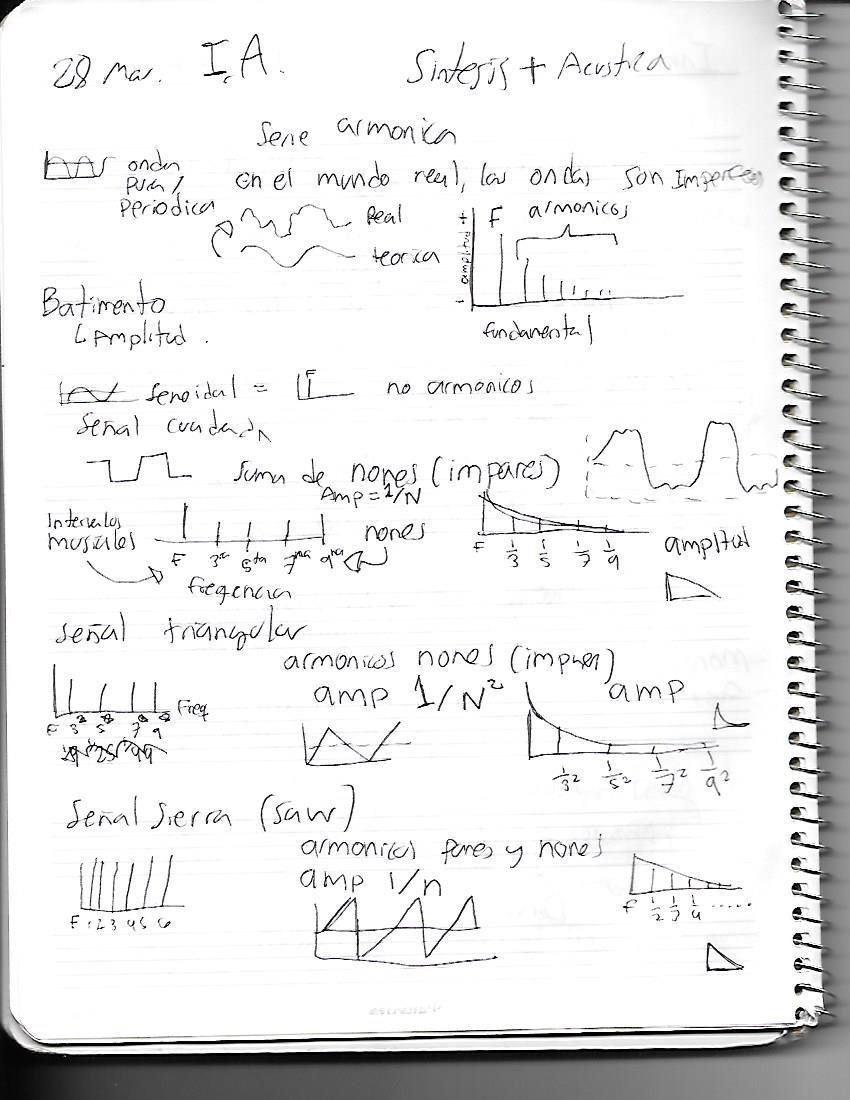 28 Mar. I.A. Sintesis + Acustica
Serie armonica
onda
pura/
periodica
en el mundo real, las ondas son Imperfec
Real
teorica
amplitud +
F armonicos
fundamental
Batimento
↳ Amplitud.
Senoidal = F no armonicos
Señal cuadada
Suma de nones (impares)
Amp = 1/N
Intervalos
musicales
F 3ra 5ta 7ma 9na nones
freqencia
F 1/3 1/5 1/7 1/9
amplitud
Señal triangular
armonicos nones (impares)
amp 1/N²
F 3ª 5ª 7ª 9ª Freq
amp
1/3² 1/5² 1/7² 1/9²
Señal Sierra (Saw)
armonicos pares y nones
amp 1/n
F 2 3 4 5 6
F 1/2 1/3 1/4 .....